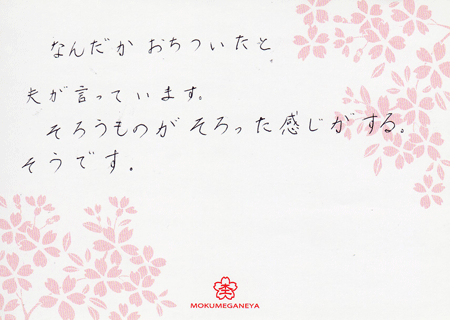 なんだか おちついたと
夫が言っています。
そろうものがそろった感じがする。
そうです.
杢
MOKUMEGANEYA